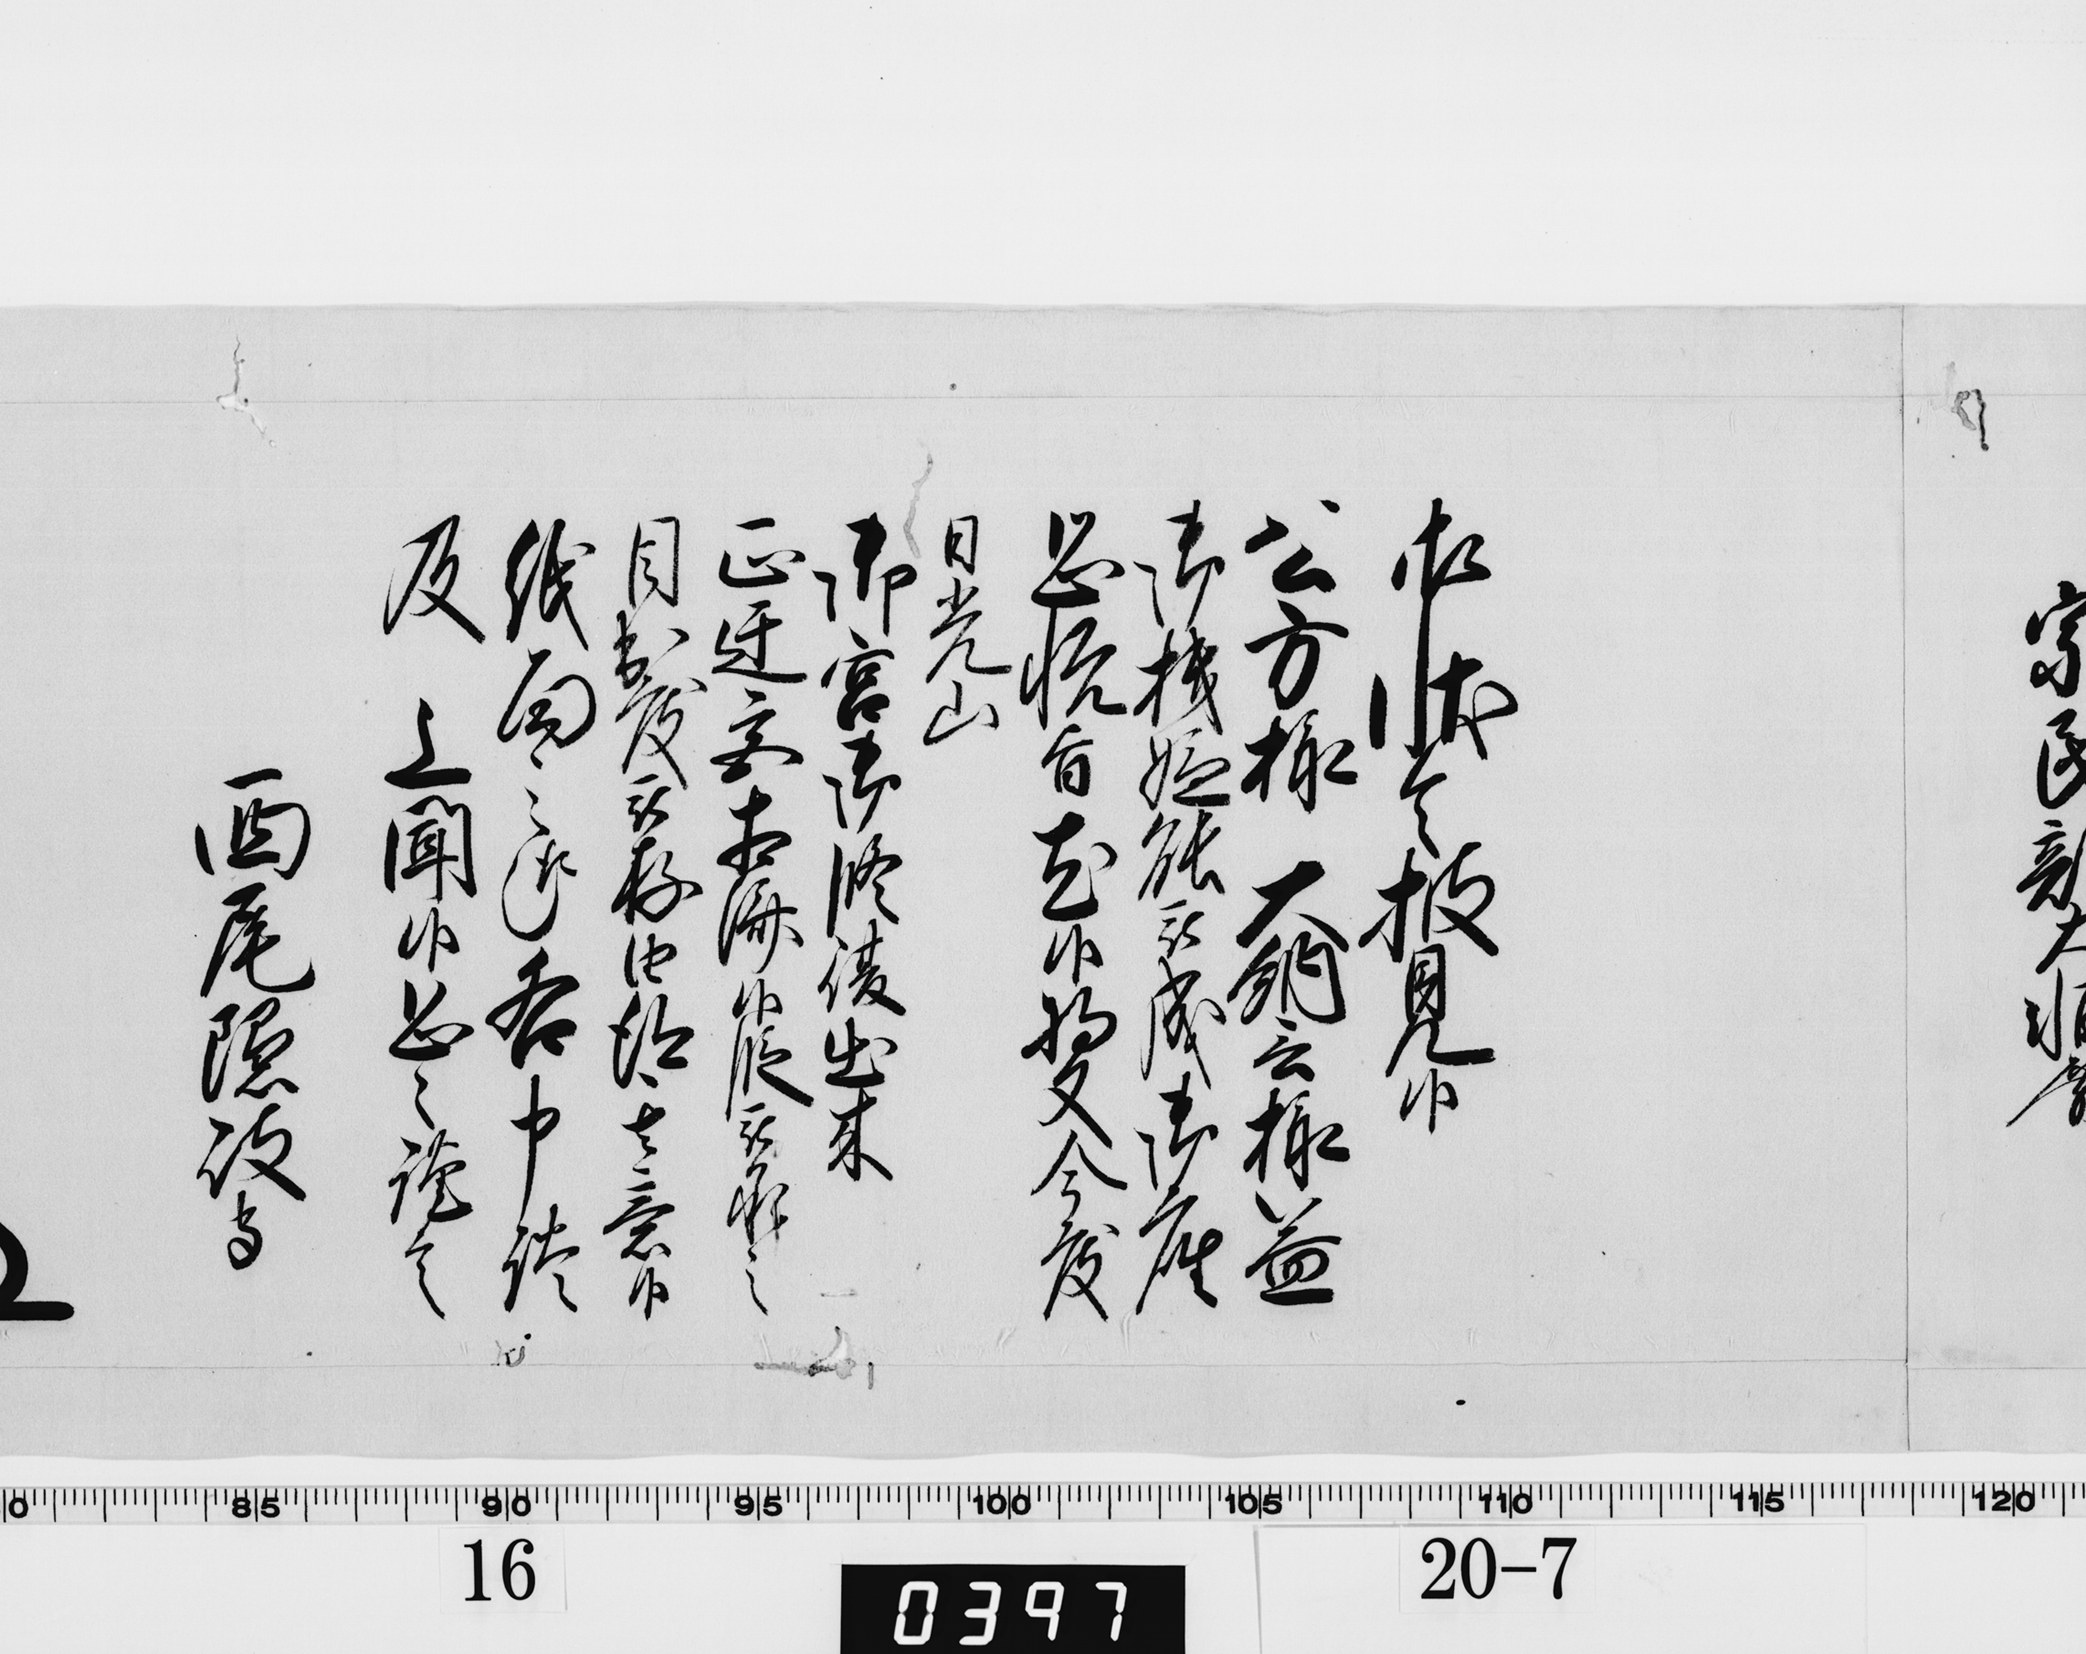 宗民部大輔
御状令披見候
公方様 大納言様益
御機嫌能被成御座
恐悦旨尤候将又今度
日光山
御宮御修復出来
正遷宮相済候段被承之
目出度被存由得其意候
紙面之趣各申談
及 上聞候恐々謹言
西尾隠岐守
80 85 90 95 100 105 110 115 120
16 0397 20-7